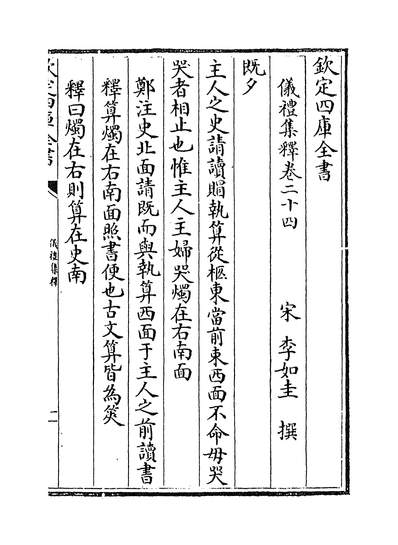 欽定四庫全書
儀禮集釋卷二十四
宋 李如圭 撰
既夕
主人之史請讀賵執算從柩東當前東西面不命毋哭
哭者相止也惟主人主婦哭燭在右南面
鄭注史北面請既而與執算西面于主人之前讀書
釋算燭在右南面照書便也古文算皆為筴
釋曰燭在右則算在史南
儀禮集釋